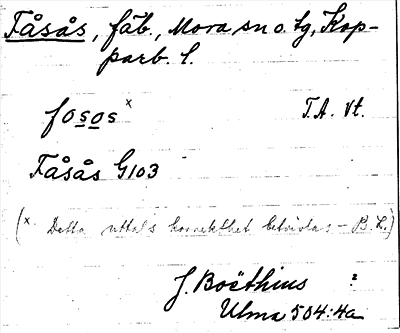 Fåsås, fäb., Mora sn o. tg, Kop-
parb. l.
fosos x T.A. Vt.
Fåsås G103
(x Detta uttals korrekthet betvivlas – B.L.)
J. Boëthius ?
Ulma 504:4a